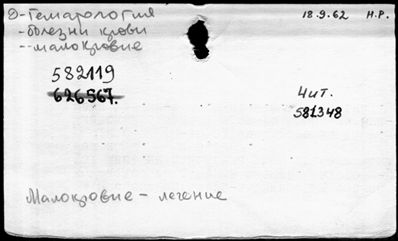 Э-Гематология 18.9.62 Н.Р.
-болезни крови
--малокровие
582119
626567.
Чит.
581348
Малокровие - лечение